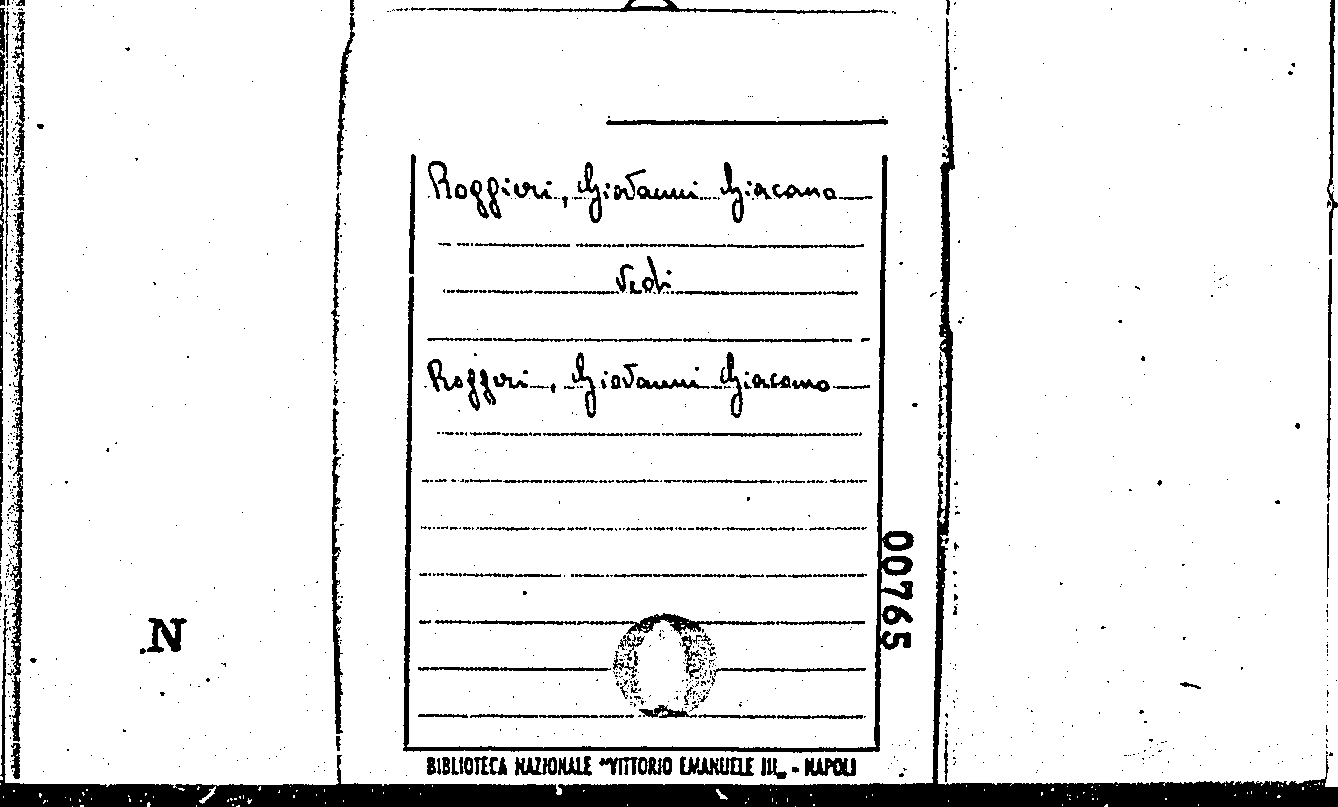 Roggieri, Giovanni Giacomo
Vedi
Roggeri, Giovanni Giacomo
00765
N
BIBLIOTECA NAZIONALE "VITTORIO EMANUELE III„ - NAPOLI